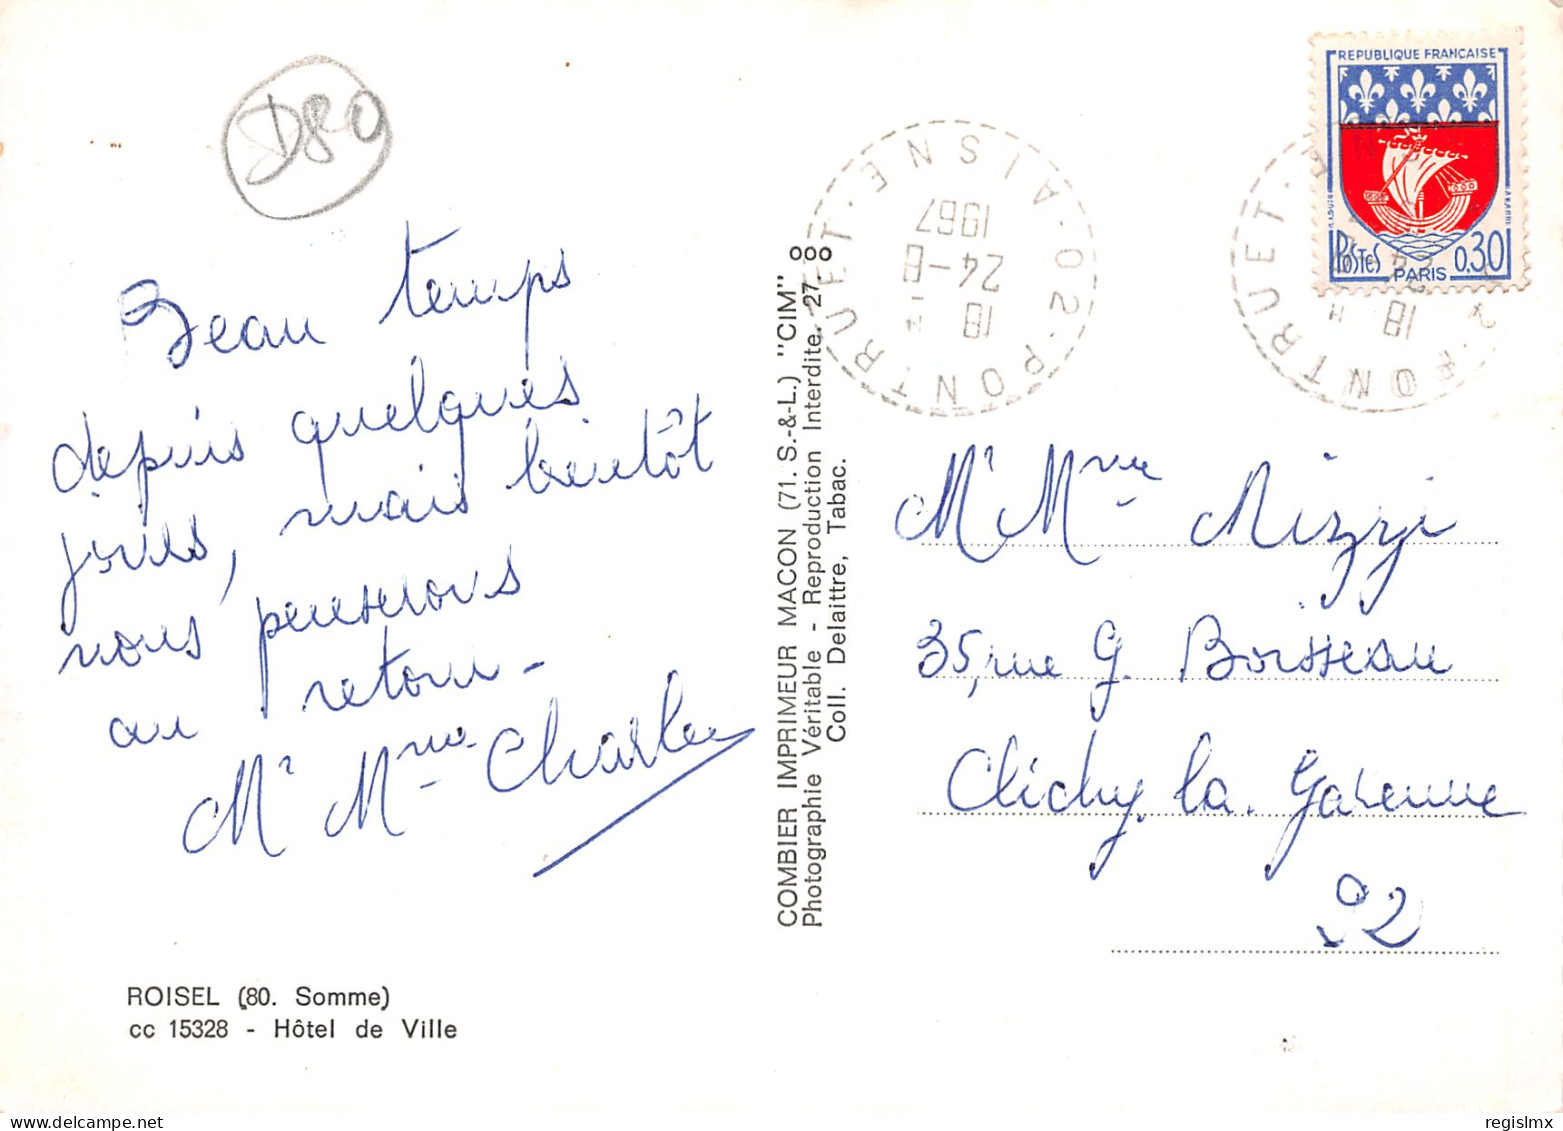 D80
Beau temps
depuis quelques
jours, mais bientôt
nous penserons
au retour -
Mr Mme Charles
ROISEL (80. Somme)
cc 15328 - Hôtel de Ville
COMBIER IMPRIMEUR MACON (71. S.-&-L.) "CIM"
Photographie Véritable - Reproduction Interdite. 27
Coll. Delaittre, Tabac.
02 · PONTRUET · AISNE
18 H
24-8
1967
PONTRUET
18 H
REPUBLIQUE FRANÇAISE
POSTES
PARIS
0,30
Mr Mme Nizzi
35, rue G. Boisseau
Clichy. la. Garenne
92
regislmx